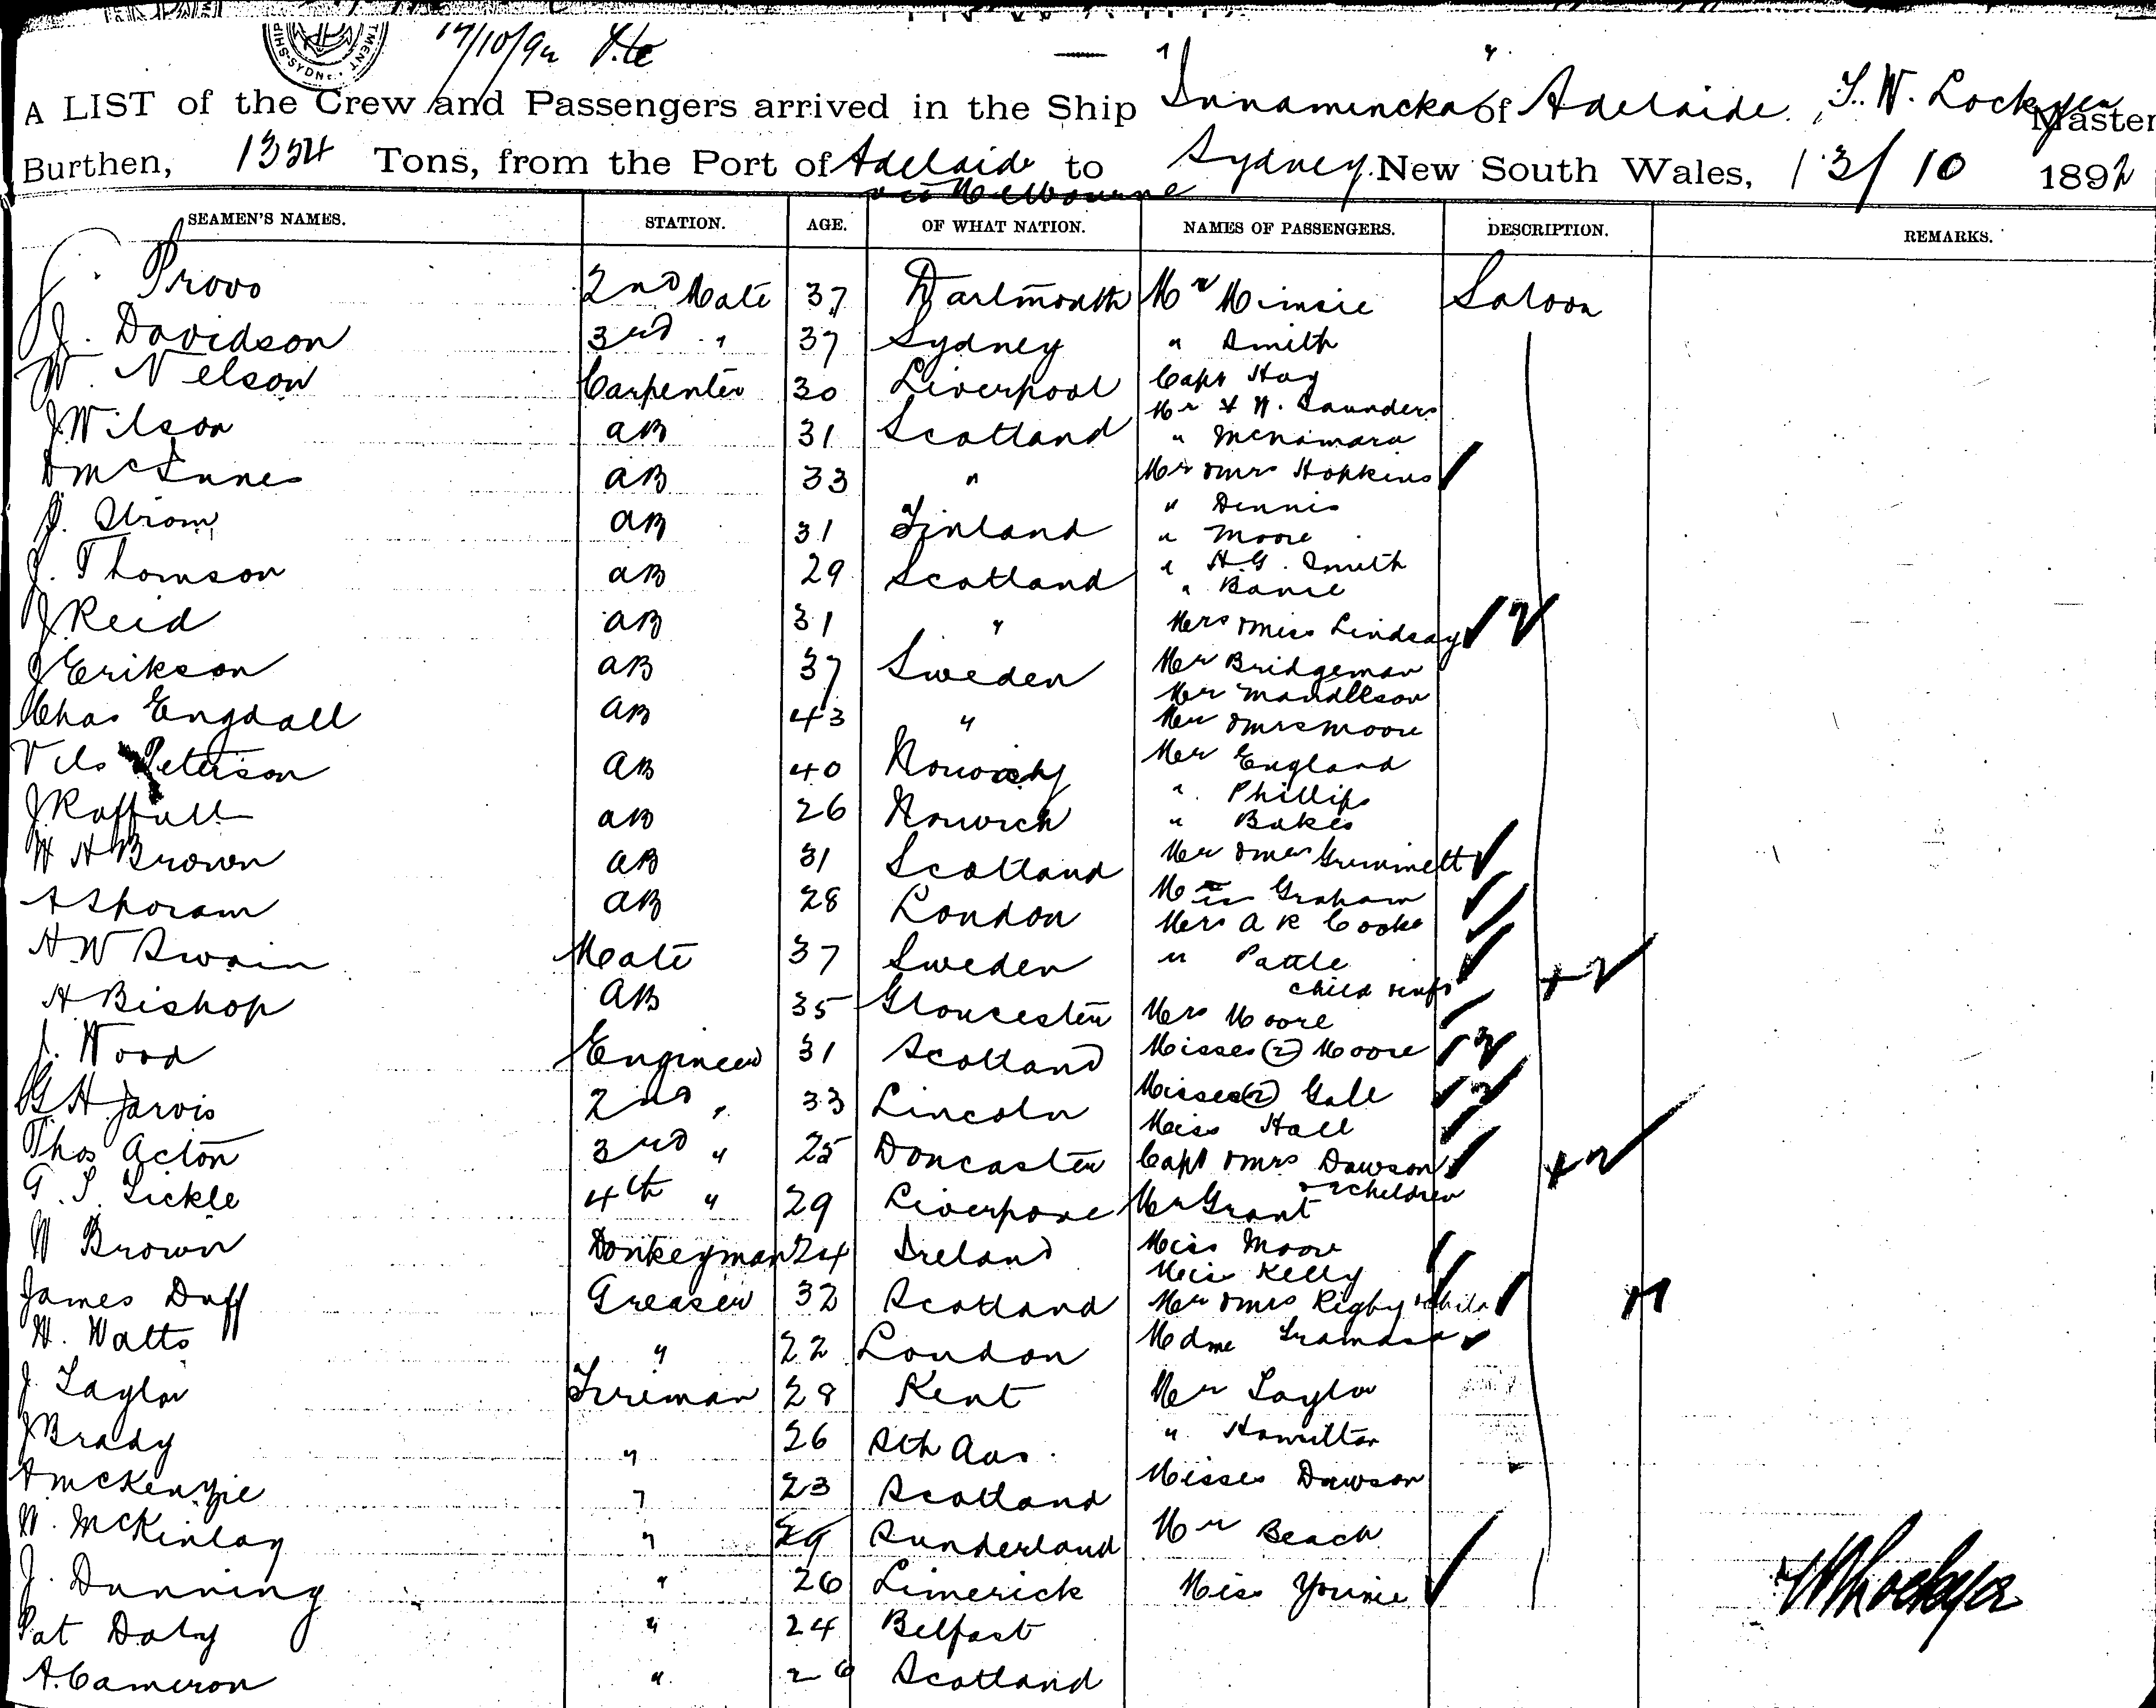 17/10/92
A LIST of the Crew and Passengers arrived in the Ship "Innamincka" of Adelaide, T. W. Lockyer Master
Burthen, 1354 Tons, from the Port of Adelaide to Sydney New South Wales, 13/10 1892
via Melbourne
SEAMEN'S NAMES. STATION. AGE. OF WHAT NATION. NAMES OF PASSENGERS. DESCRIPTION. REMARKS.
J. Provo 2nd Mate 37 Dartmouth Mr Minsie Saloon
J. Davidson 3rd " 37 Sydney " Smith
W. Nelson Carpenter 30 Liverpool Capt Hay
Mr & W. Saunders
J Wilson AB 31 Scotland " McNamara
D McInnes AB 33 " Mr & Mrs Hopkins
" Dennis
J. Strom AB 31 Finland " Moore
" H.G. Smith
J. Thomson AB 29 Scotland "
J Reid AB 31 " Mrs & Miss Lindsay 2
J Erikson AB 37 Sweden Mr Bridgeman
Mr Mandllson
Chas Engdall AB 43 " Mr & Mrs Moore
Nils Peterson AB 40 Mr England
" Phillips
J Raffall AB 26 Norwich " Bakes
W H Brown AB 31 Scotland Mr & Mrs Grummett
A Shoram AB 28 London Miss Graham
Mrs A R Cooke
H W Swain Mate 37 Sweden " Pattle
child & inft + 2
H Bishop AB 35 Gloucester Mrs Moore
J. Wood Engineer 31 Scotland Misses (2) Moore 2
G H Jarvis 2nd " 33 Lincoln Misses (2) Gale 2
Miss Hall
Thos Acton 3rd " 25 Doncaster Capt & Mrs Dawson + 2
& 2 children
G. S. Sickle 4th " 29 Liverpool Mr Grant
W Brown Donkeyman 24 Ireland Miss Moore
Miss Kelly
James Duff Greaser 32 Scotland Mr & Mrs Rigby & child
W. Watts " 22 London Mdme
J Taylor Fireman 28 Kent Mr Taylor
J Brady " 26 Sth Aus. " Hamilton
A McKenzie " 23 Scotland Misses Dawson
W. McKinlay " 29 Sunderland Mr Beach
J. Dunning " 26 Limerick Miss Younie
Pat Daly " 24 Belfast
A. Cameron " 26 Scotland
T W Lockyer